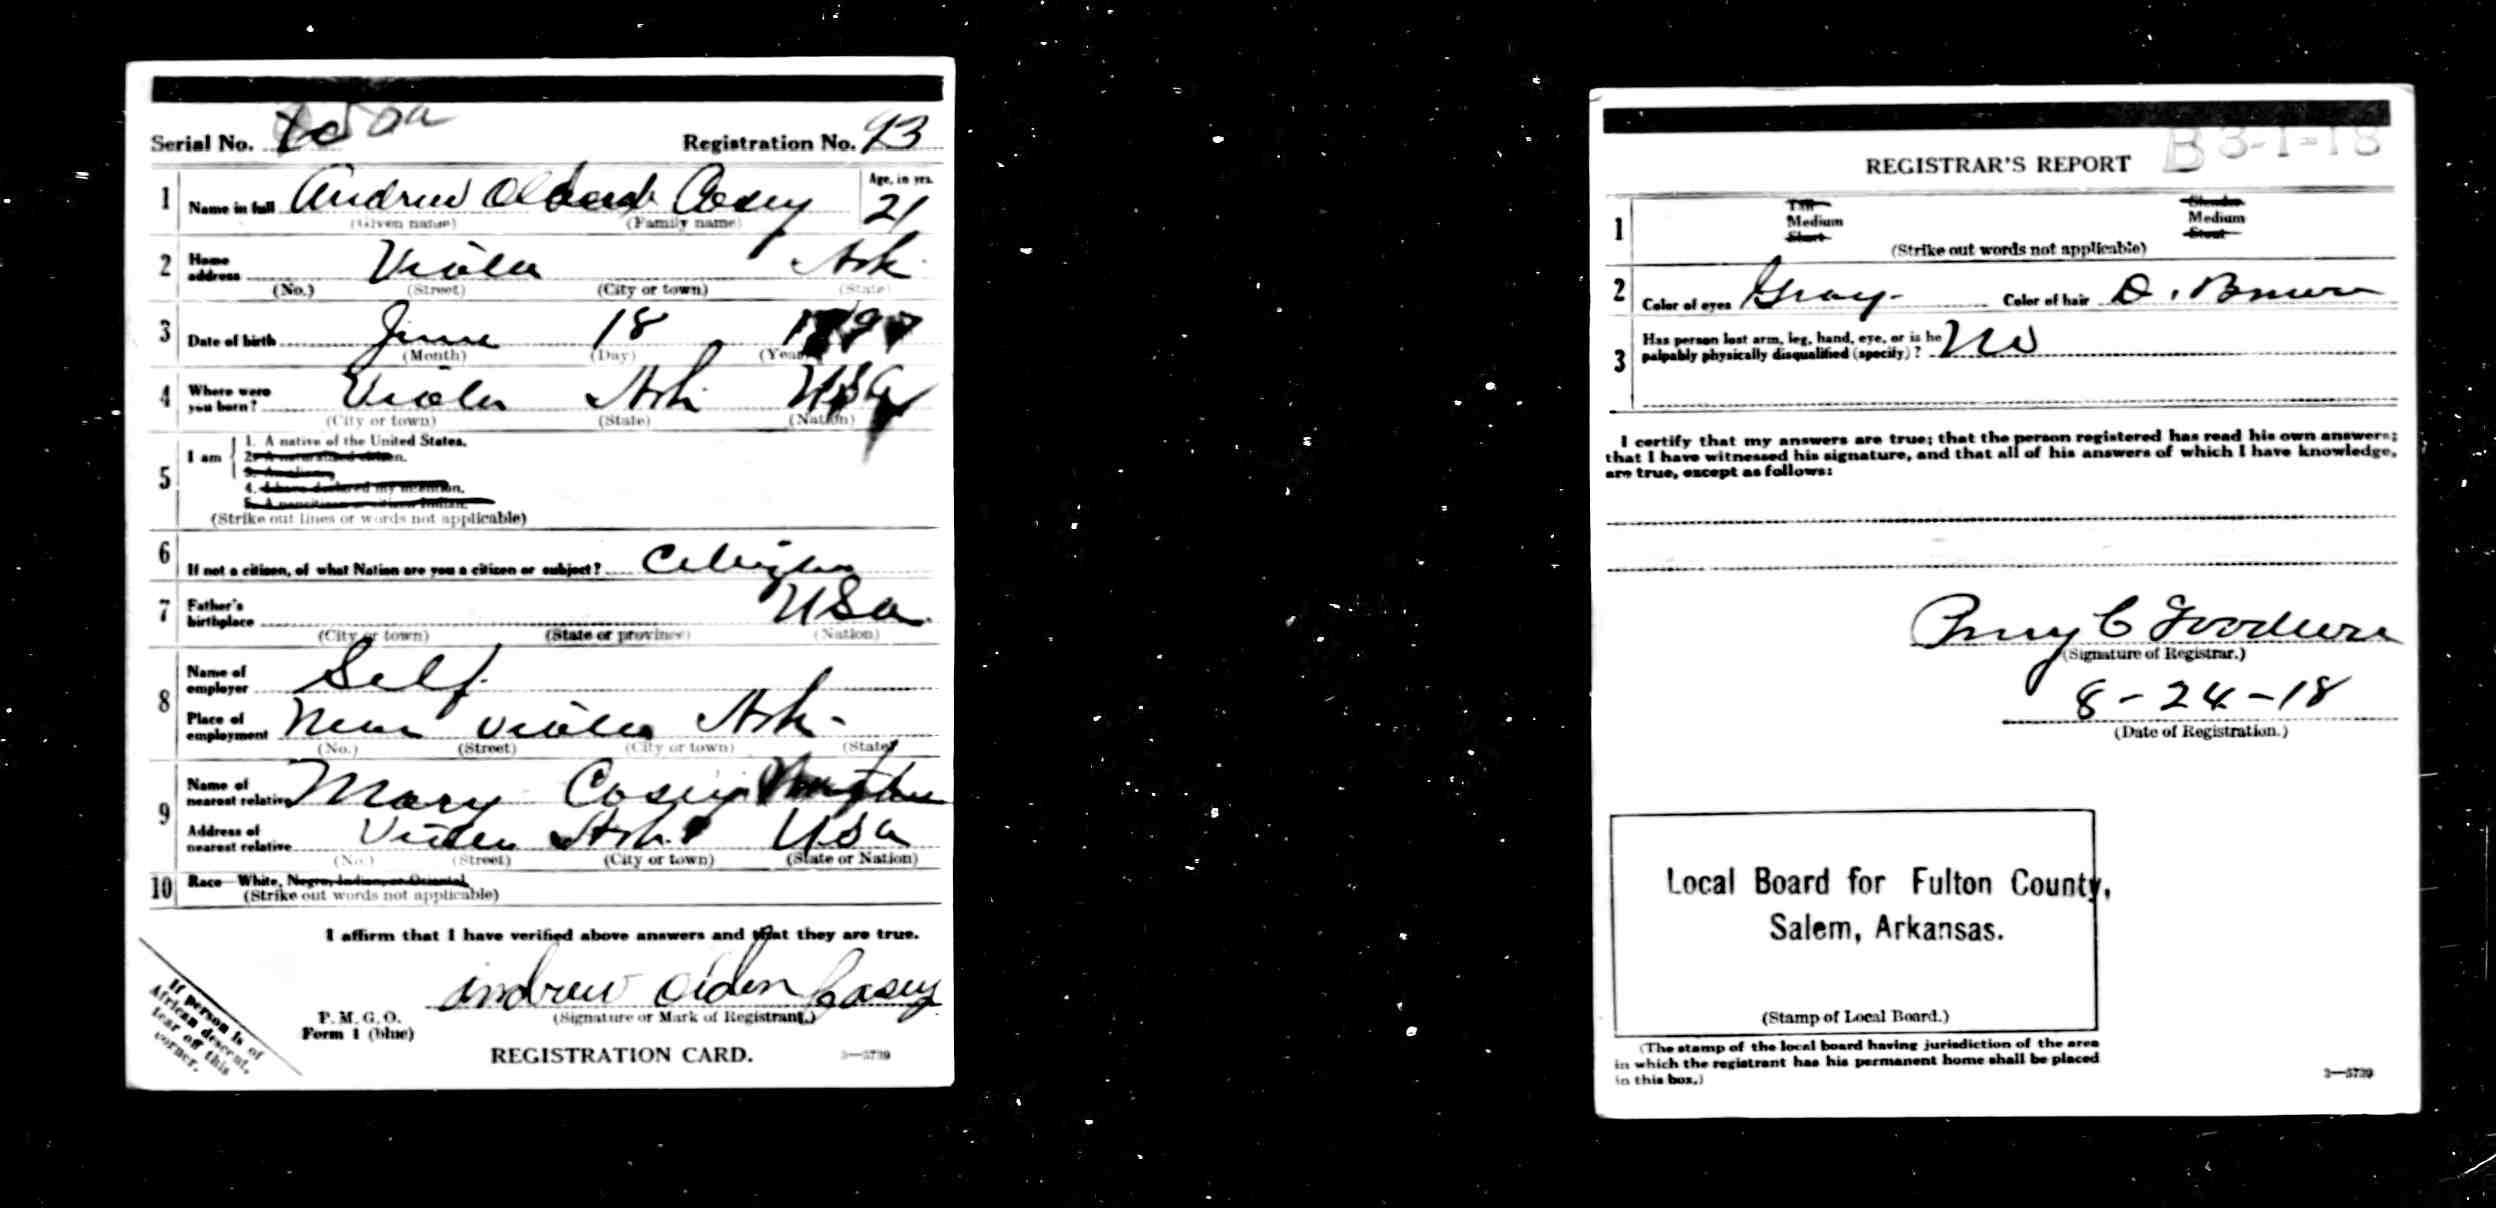 Serial No. Registration No. 93
1 Name in full Andrew Casey Age, in yrs. 21
(Given name) (Family name)
2 Home address Viola Ark
(No.) (Street) (City or town) (State)
3 Date of birth June 18
(Month) (Day) (Year)
4 Where were you born? Viola Ark USA
(City or town) (State) (Nation)
5 I am
1. A native of the United States.
2. A naturalized citizen.
3. An alien.
4. I have declared my intention.
5.
(Strike out lines or words not applicable)
6 If not a citizen, of what Nation are you a citizen or subject? Citizen
7 Father's birthplace USA
(City or town) (State or province) (Nation)
8 Name of employer Self
Place of employment Near Viola Ark-
(No.) (Street) (City or town) (State)
9 Name of nearest relative Mary Casey Mother
Address of nearest relative Viola Ark USA
(No.) (Street) (City or town) (State or Nation)
10 Race—White, Negro, Indian, or Oriental
(Strike out words not applicable)
I affirm that I have verified above answers and that they are true.
Andrew Olden Casey
(Signature or Mark of Registrant.)
P. M. G. O.
Form 1 (blue)
REGISTRATION CARD. 3—5739
If person is of
African descent,
tear off this
corner.
B 3-1-18
REGISTRAR'S REPORT
1 Tall Slender
Medium Medium
Short Stout
(Strike out words not applicable)
2 Color of eyes Gray- Color of hair D. Brown
3 Has person lost arm, leg, hand, eye, or is he
palpably physically disqualified (specify)? No
I certify that my answers are true; that the person registered has read his own answers;
that I have witnessed his signature, and that all of his answers of which I have knowledge,
are true, except as follows:
Perry C Goodwin
(Signature of Registrar.)
8-24-18
(Date of Registration.)
Local Board for Fulton County,
Salem, Arkansas.
(Stamp of Local Board.)
(The stamp of the local board having jurisdiction of the area
in which the registrant has his permanent home shall be placed
in this box.)
3—5739